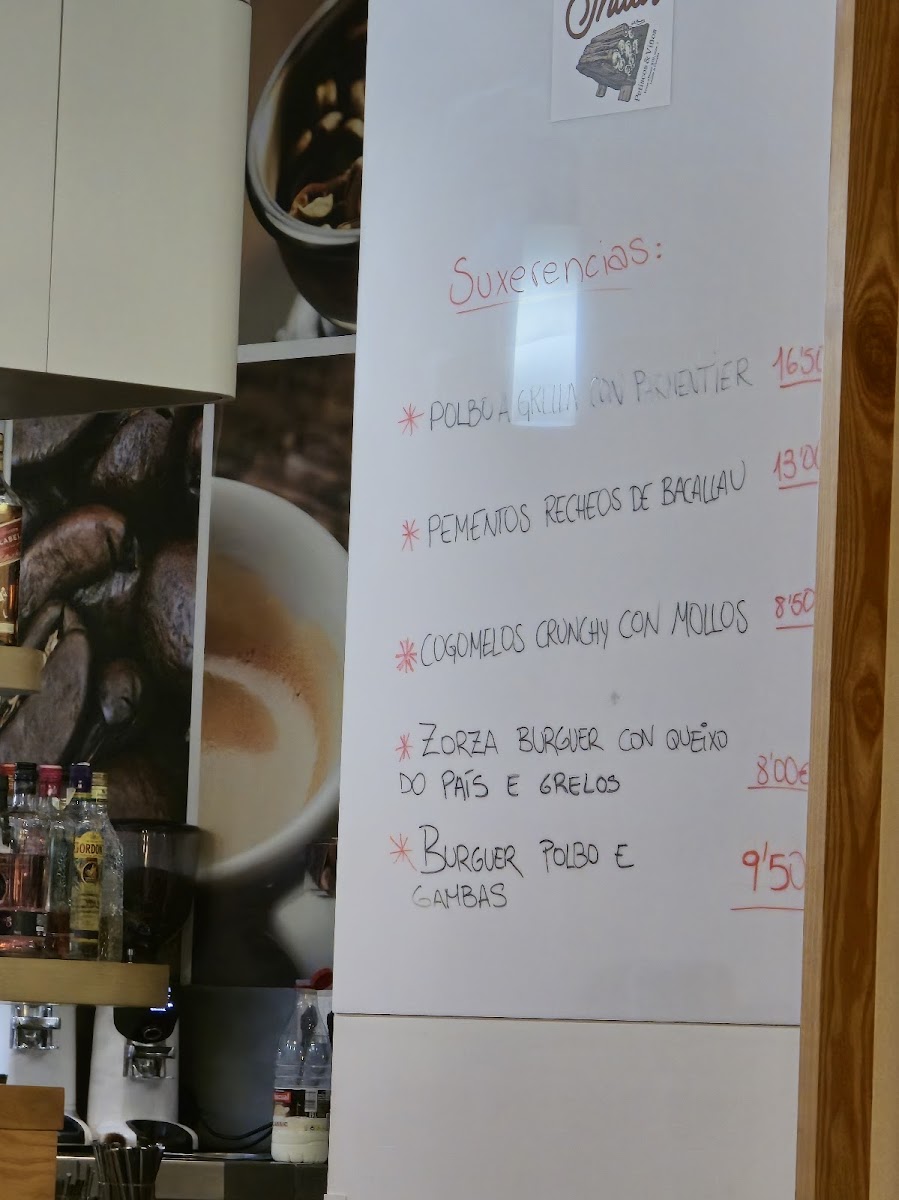 Petiscos & Viños
Suxerencias:
* POLBO A GRELLA CON PARMENTIER 16'50
* PEMENTOS RECHEOS DE BACALLAU 13'00
* COGOMELOS CRUNCHY CON MOLLOS 8'50
* ZORZA BURGUER CON QUEIXO
DO PAÍS E GRELOS 8'00€
* BURGUER POLBO E 9'50
GAMBAS
LABEL
GORDON